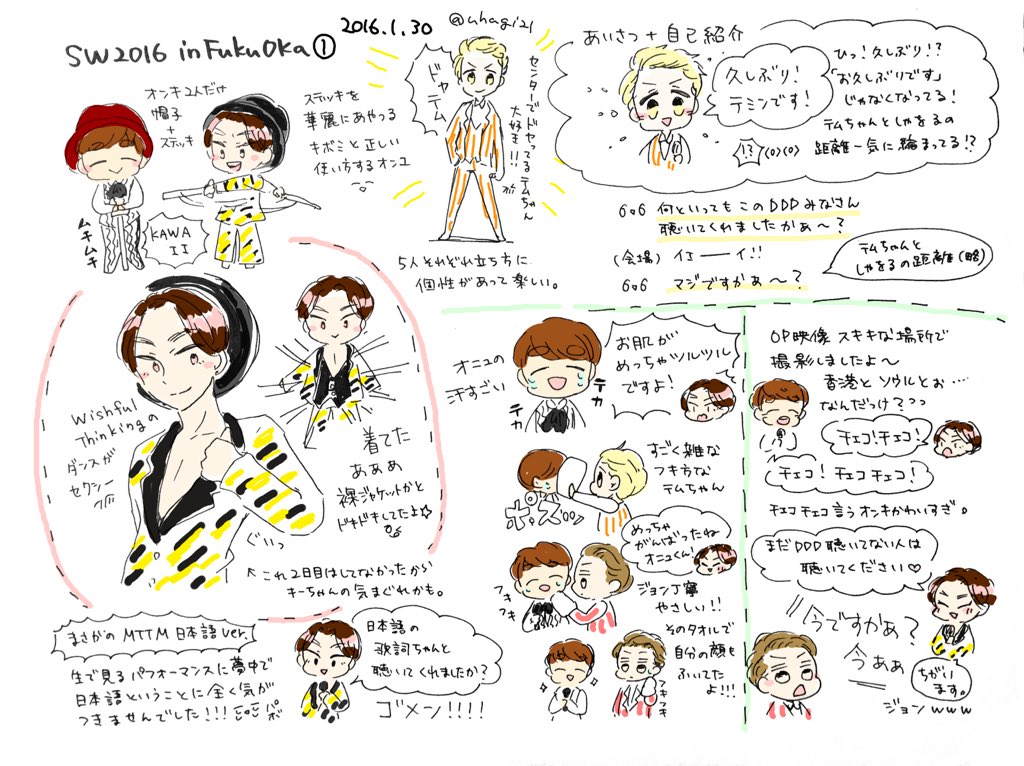 SW2016 in FukuOka ①
2016.1.30
@uhagi21
オンキ2人だけ
帽子
+
ステッキ
ステッキを
華麗にあやつる
キボミと正しい
使い方するオンユ
ムチムチ
KAWA
II
ドヤテム
センターでドヤってるテムちゃん
大好き!!
5人それぞれ立ち方に
個性があって楽しい。
あいさつ+自己紹介
久しぶり!
テミンです!
ひっ!久しぶり!?
「お久しぶりです」
じゃなくなってる!
テムちゃんとしゃをるの
距離一気に縮まってる!?
!?
何といってもこのDDDみなさん
聴いてくれましたかぁ〜?
(会場) イェーーイ!!
マジですかぁ〜?
テムちゃんと
しゃをるの距離(略)
Wishful
Thinkingの
ダンスが
セクシー
ぐいっ
着てた
あぁぁ
裸ジャケットかと
ドキドキしてたよ☆
←これ2日目はしてなかったから
キーちゃんの気まぐれかも。
まさかの MTTM 日本語 ver.
生で見るパフォーマンスに夢中で
日本語ということに全く気が
つきませんでした!!!
パボ
日本語の
歌詞ちゃんと
聴いてくれましたか?
ゴメン!!!!
オニュの
汗すごい
テカ
テカ
お肌が
めっちゃツルツル
ですよ!
すごく雑な
フキ方な
テムちゃん
ポスッ
めっちゃ
がんばったね
オニュくん!
フキ
フキ
ジョン丁寧
やさしい!!
そのタオルで
自分の顔も
ふいてた
よ!!!
フキ
フキ
OP映像 ステキな場所で
撮影しましたよ〜
香港と ソウルとぉ…
なんだっけ?っっ
チェコ!チェコ!
チェコ! チェコチェコ!
チェコチェコ言うオンキかわいすぎ。
まだDDD聴いてない人は
聴いてください♡
今ですかぁ?
今ぁぁ
ちがい
ます。
ジョンwww